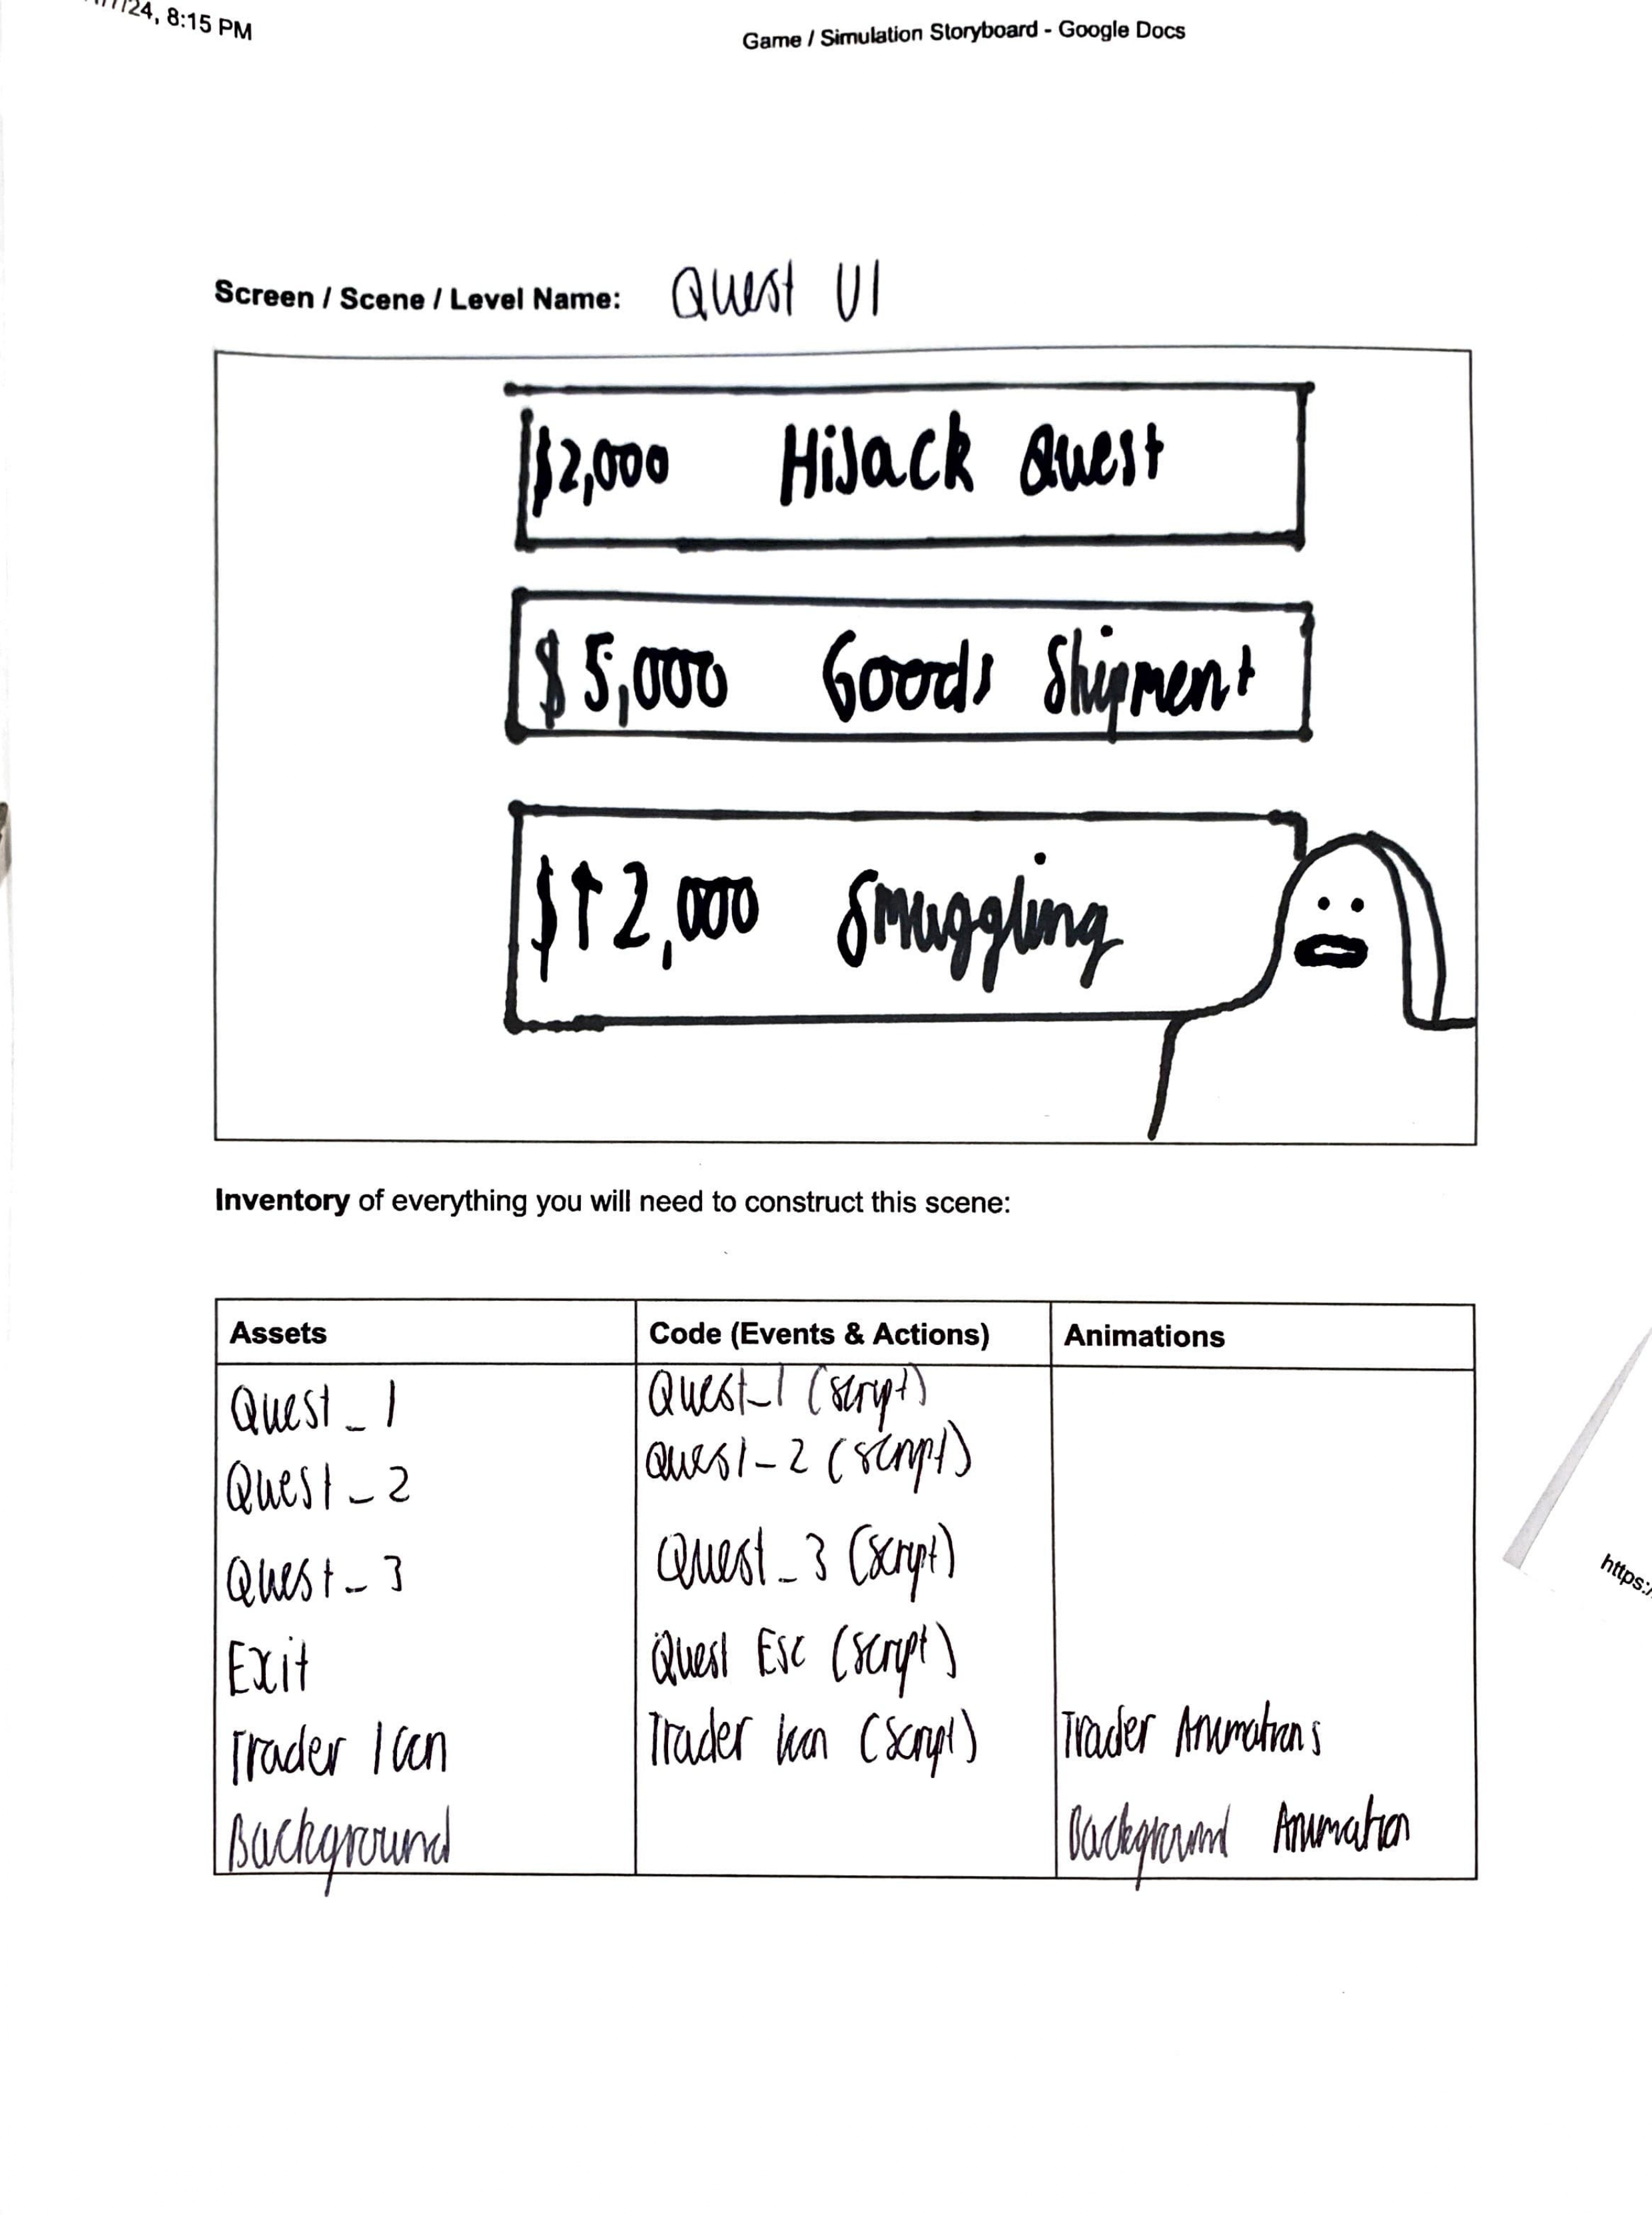 24, 8:15 PM
Game / Simulation Storyboard - Google Docs
Screen / Scene / Level Name: Quest UI
$2,000 HiJack Quest
$5,000 Goods Shipment
$12,000 Smuggling
Inventory of everything you will need to construct this scene:
Assets Code (Events & Actions) Animations
Quest_1 Quest_1 (script)
Quest_2 Quest_2 (script)
Quest_3 Quest_3 (script)
Exit Quest Esc (script)
Trader Icon Trader Icon (script) Trader Animations
Background Background Animation
https:/